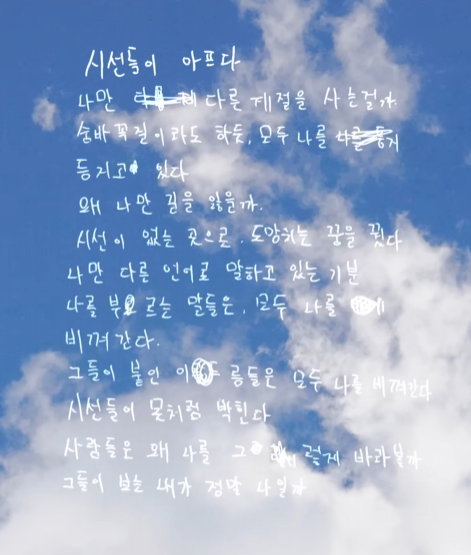 시선들이 아프다
나만 다른 계절을 사는걸까
숨바꼭질이라도 하듯, 모두 나를
등지고 있다
왜 나만 길을 잃을까.
시선이 없는 곳으로, 도망치는 꿈을 꿨다
나만 다른 언어로 말하고 있는 기분
나를 부르는 말들은, 모두 나를
비껴간다.
그들이 붙인 이름들은 모두 나를 비껴간다
시선들이 못처럼 박힌다
사람들은 왜 나를 그렇게 바라볼까
그들이 보는 내가 정말 나일까